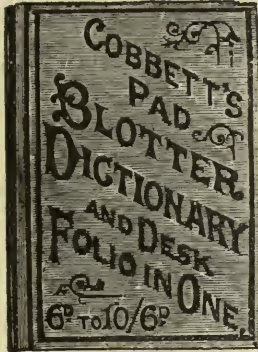 COBBETT'S
PAD
BLOTTER
DICTIONARY
AND DESK
FOLIO IN ONE,
6D TO 10/6D